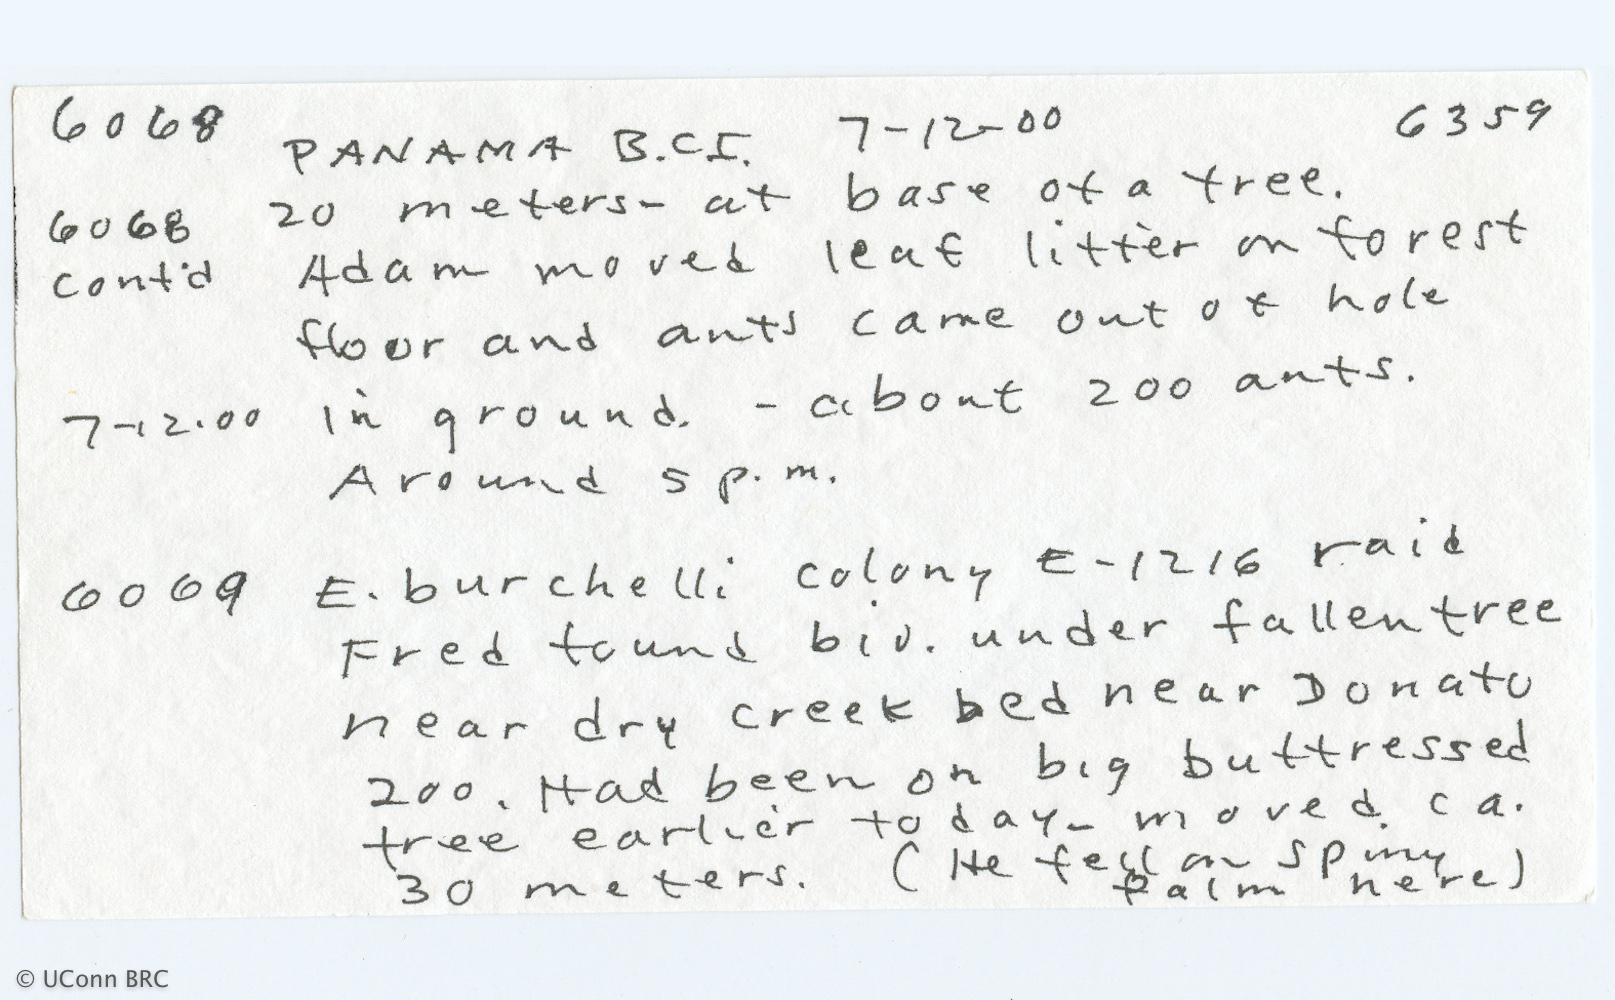 6068 PANAMA B.C.I. 7-12-00 6359
6068 20 meters- at base of a tree.
cont'd Adam moved leaf litter on forest
floor and ants came out of hole
7-12-00 in ground. - about 200 ants.
Around 5 p.m.
6069 E. burchelli colony E-1216 raid
Fred found biv. under fallen tree
near dry creek bed near Donato
200. Had been on big buttressed
tree earlier today - moved ca.
30 meters. (He fell on spiny
palm here)
© UConn BRC